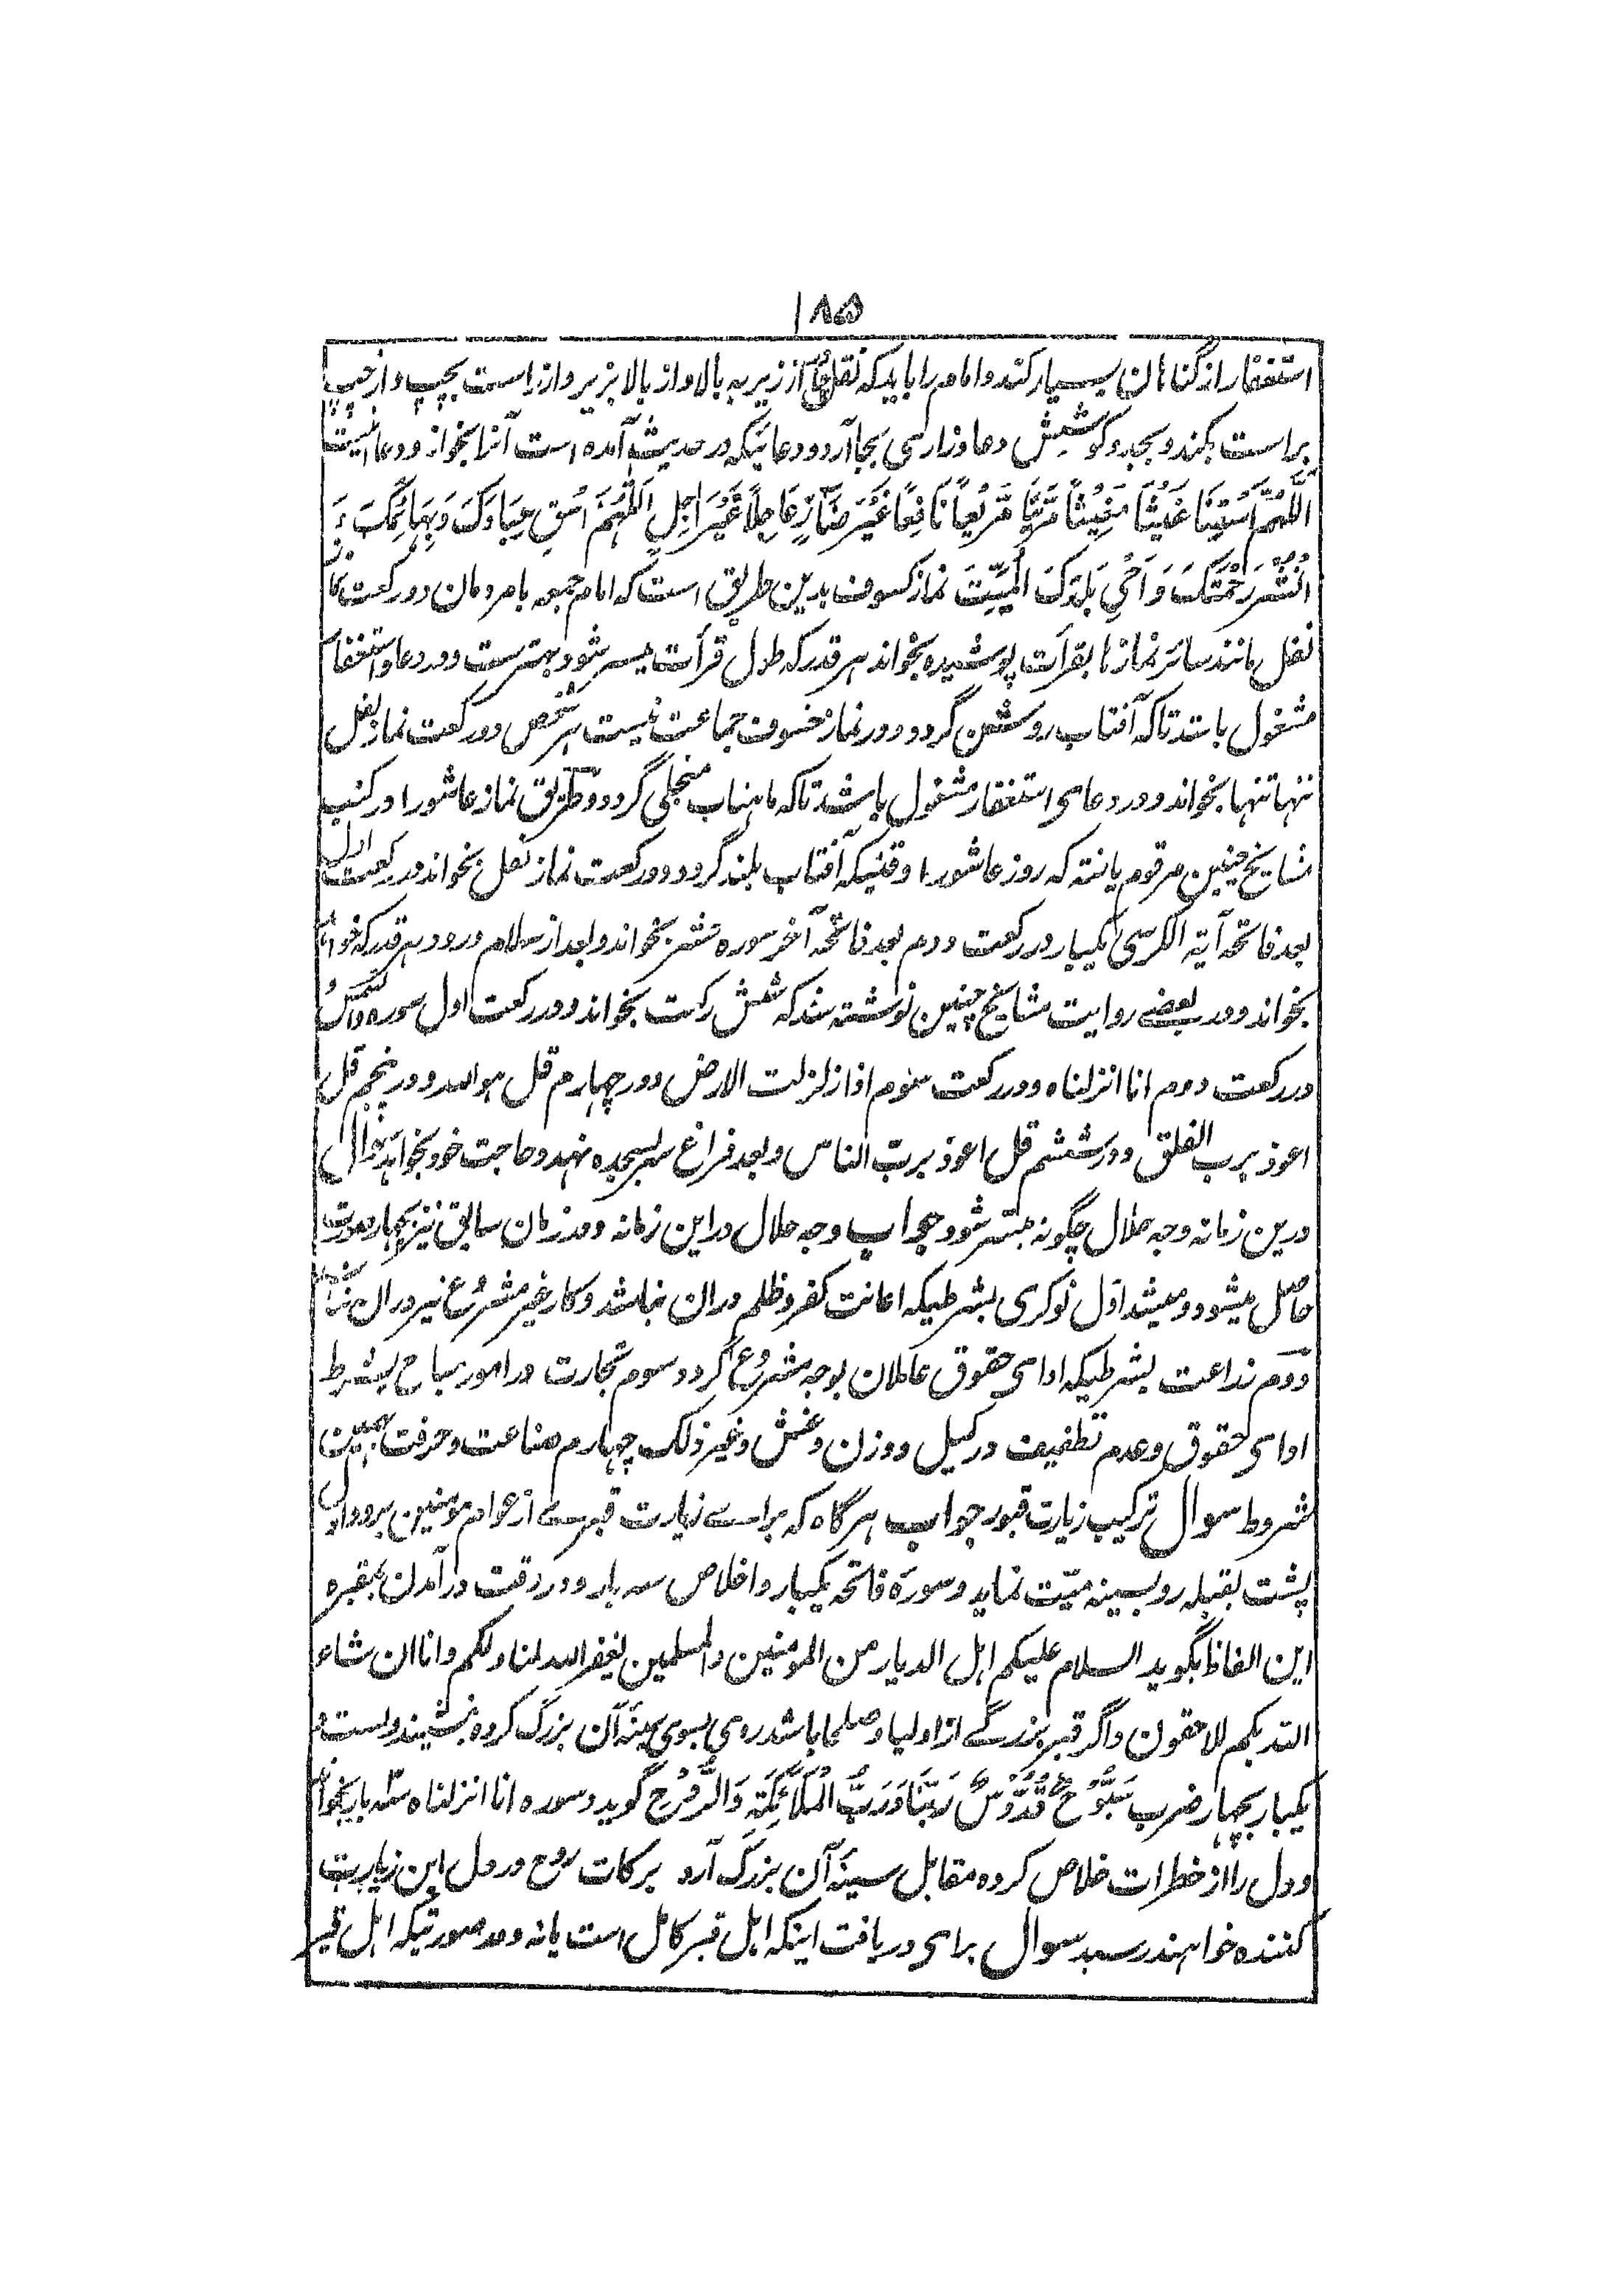 ۱۸۵
استغفار از گناهان بسیار کنند و امام را باید که نقل از زیر به بالا و از بالا بزیر و از راست بچپ و از چپ
براست بکند و بجد و کوشش دعا و زاری بجا آرد و دعائیکه در حدیث آمده است آنرا بخواند و دعا اینست
اَللّٰهُمَّ اسْقِنَا غَيْثًا مُغِيْثًا مَّرِيًّا مَّرِيْعًا نَافِعًا غَيْرَ ضَآرٍّ عَاجِلًا غَيْرَ اٰجِلٍ اَللّٰهُمَّ اسْقِ عِبَادَكَ وَبَهَائِمَكَ وَ
انْشُرْ رَحْمَتَكَ وَ اَحْيِ بَلَدَكَ الْمَيِّتَ نماز کسوف بدین طریق است که امام جمعه با مردمان دو رکعت نماز
نفل مانند سائر نمازها بقرأت پوشیده بخواند هر قدر که طول قرأت میسر شود بهترست و در دعا و استغفار
مشغول باشد تا که آفتاب روشن گردد و در نماز خسوف جماعت نیست هر شخص دو رکعت نماز نفل
تنها تنها بخواند و در دعا و استغفار مشغول باشد تا که ماهتاب منجلی گردد و طریق نماز عاشورا در کتب
مشایخ چنین مرقوم یافته که روز عاشورا وقتیکه آفتاب بلند گردد دو رکعت نماز نفل بخواند در رکعت اول
بعد فاتحه آیة الکرسی یکبار در رکعت دوم بعد فاتحه آخر سوره حشر بخواند و بعد از سلام درود هر قدر که خواهد
بخواند و در بعضے روایت مشایخ چنین نوشته شد که شش رکعت بخواند و در رکعت اول سوره والشمس
در رکعت دوم انا انزلناه و در رکعت سوم اذا زلزلت الارض و در چهارم قل هو الله و در پنجم قل
اعوذ برب الفلق و در ششم قل اعوذ برب الناس و بعد فراغ سر بسجده نهد و حاجت خود بخواهد سوال
درین زمانه وجه حلال چگونه میسر شود جواب وجه حلال در این زمانه و در زمان سابق نیز بچهار صورت
حاصل میشود و میشد اول نوکری بشرطیکه اعانت کفر و ظلم دران نباشد و کار غیر مشروع نیز دران نباشد
دوم زراعت بشرطیکه ادای حقوق عاملان بوجه مشروع گردد سوم تجارت در امور مباح بشرط
ادای حقوق و عدم تطفیف در کیل و وزن و غش و غیر ذلک چهارم صناعت و حرفت بهمین
شروط سوال ترکیب زیارت قبور جواب هرگاه که براے زیارت قبرے از عوام مومنین برود اول
پشت بقبله رو بسینه میّت نماید و سورة فاتحه یکبار و اخلاص سه بار و در وقت در آمدن بمقبره
این الفاظ بگوید السلام علیکم اهل الدیار من المومنین والمسلمین یغفر الله لنا ولکم وانا ان شاء
الله بکم لاحقون و اگر قبر بزرگے از اولیا و صلحا باشد روی بسوی سینۀ آن بزرگ کرده بنشیند و بست و
یکبار بچهار ضرب سُبُّوْحٌ قُدُّوْسٌ رَبُّنَا وَرَبُّ الْمَلَآئِكَةِ وَالرُّوْحِ گوید و سوره انا انزلناه سه بار بخواند
و دل را از خطرات خلاص کرده مقابل سینۀ آن بزرگ آرد برکات روح در دل این زیارت
کننده خواهند رسید سوال برای دریافت اینکه اهل قبر کامل است یا نه و در صورتیکه اهل قبر